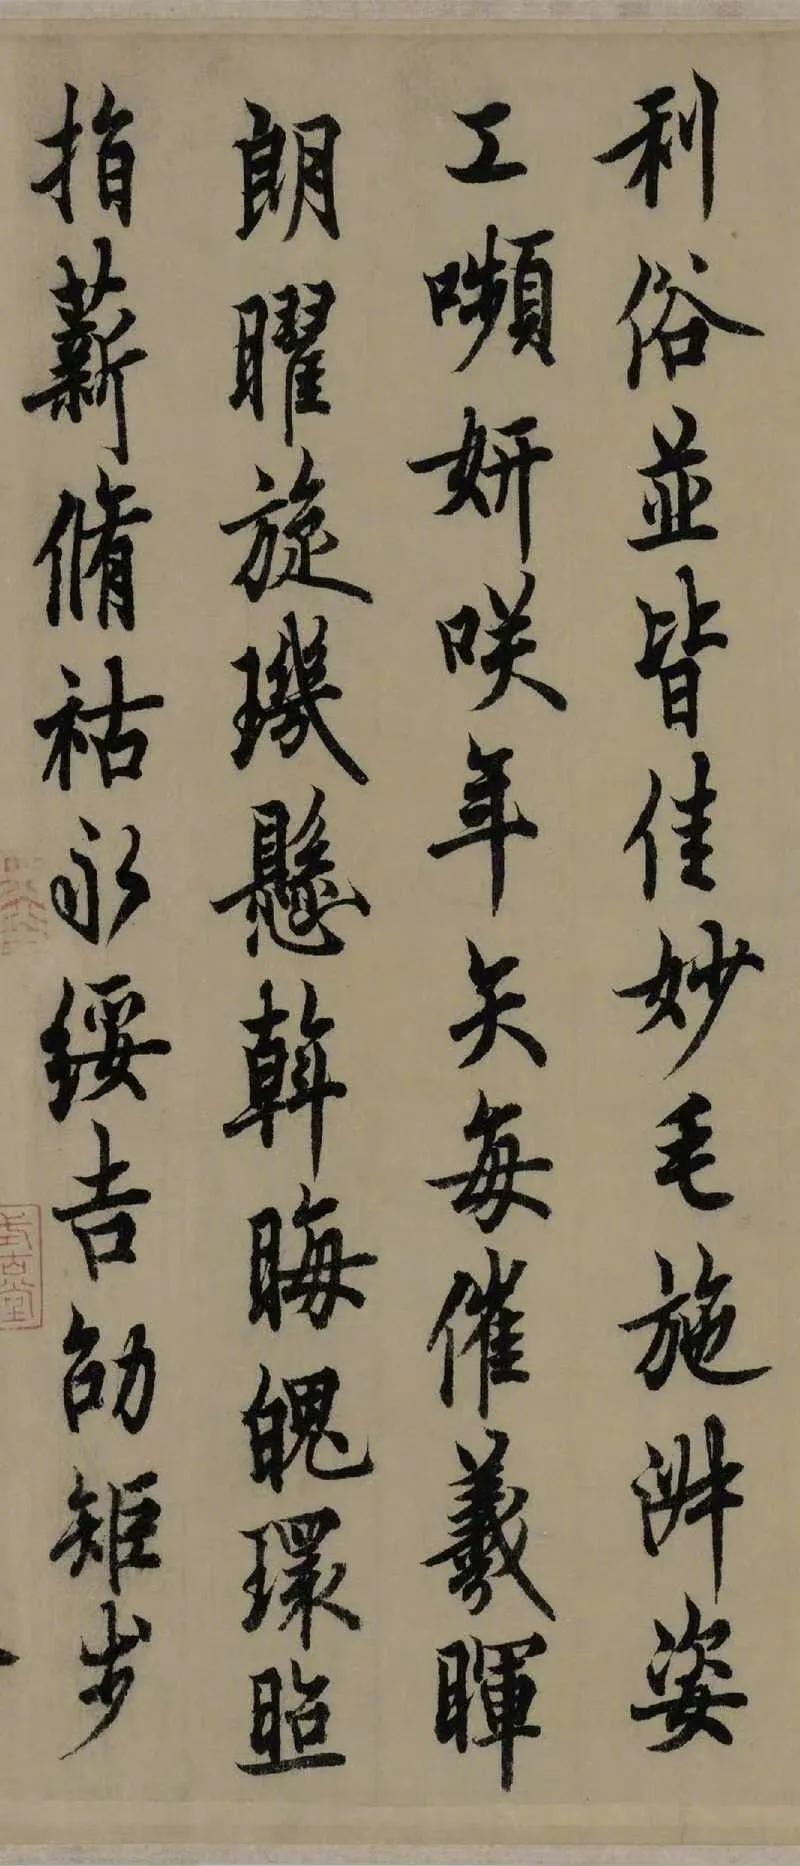 利俗並皆佳妙毛施淑姿
工嚬妍咲年矢每催羲暉
朗曜旋璣懸斡晦魄環照
指薪脩祜永綏吉劭矩步
式古堂